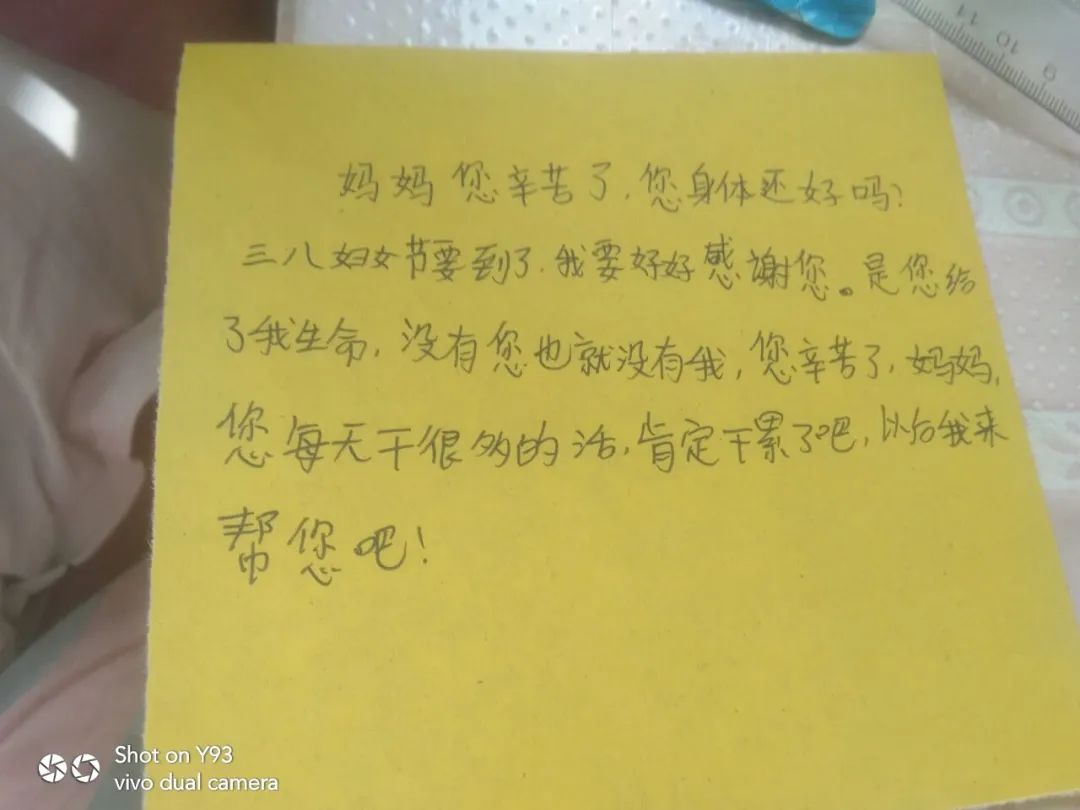 妈妈您辛苦了，您身体还好吗？
三八妇女节要到了，我要好好感谢您。是您给
了我生命，没有您也就没有我，您辛苦了，妈妈，
您每天干很多的活，肯定干累了吧，以后我来
帮您吧！
11 10 9
Shot on Y93
vivo dual camera